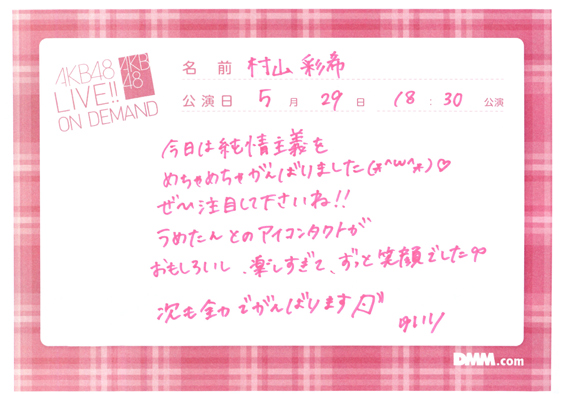 AKB48
LIVE!!
ON DEMAND
AKB
48
名 前 村山 彩希
公演日 5 月 29 日 18 : 30 公演
今日は純情主義を
めちゃめちゃがんばりました(*^ω^*)♡
ぜひ注目して下さいね!!
うめたんとのアイコンタクトが
おもしろいし、楽しすぎて、ずっと笑顔でした
次も全力でがんばります
ゆいり
DMM.com